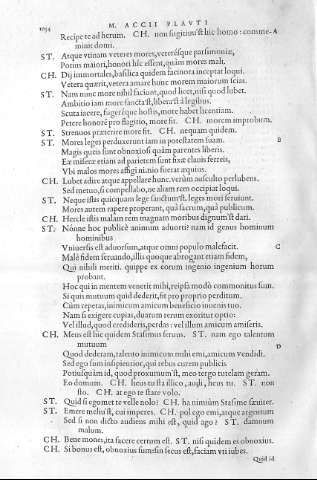 1054
M. ACCII PLAVTI
Recipe te ad herum. CH. non fugitiuus'st hic homo: comme- A
minit domi.
ST. Atque vtinam veteres mores, veterésque parsimoniæ,
Potius maiori honori hîc essent, quàm mores mali.
CH. Dij immortales, basilica quidem facinora inceptat loqui.
Vetera quærit, vetera amare hunc morem maiorum scias.
ST. Nam nunc mores nihil faciunt, quod licet, nisi quod lubet.
Ambitio iam more sancta'st, libera'st à legibus.
Scuta iacere, fugeréque hostis, more habet licentiam.
Petere honorē pro flagitio, more fit. CH. morem improbum.
ST. Strenuos præterire more fit. CH. nequam quidem.
ST. Mores leges perduxerunt iam in potestatem suam. B
Magis queis sunt obnoxiosi quàm parentes liberis.
Eæ miseræ etiam ad parietem sunt fixæ clauis ferreis,
Vbi malos mores affigi nimio fuerat æquius.
CH. Lubet adire atque appellare hunc. verùm ausculto perlubens.
Sed metuo, si compellabo, ne aliam rem occipiat loqui.
ST. Neque istis quicquam lege sanctum'st. leges mori seruiunt.
Mores autem rapere properant, quà sacrum, quà publicum.
CH. Hercle istis malam rem magnam moribus dignum'st dari.
ST. Nónne hoc publicè animum aduorti? nam id genus hominum
hominibus
Vniuersis est aduorsum, atque omni populo malefacit. C
Malè fidem seruando, illis quoque abrogant etiam fidem,
Qui nihil meriti. quippe ex eorum ingenio ingenium horum
probant.
Hoc qui in mentem venerit mihi, reipsa modò commonitus sum.
Si quis mutuum quid dederit, fit pro proprio perditum.
Cùm repetas, inimicum amicum beneficio inuenis tuo.
Nam si exigere cupias, duarum rerum exoritur optio:
Vel illud, quod credideris, perdas: vel illum amicum amiseris.
CH. Meus est hic quidem Stasimus seruus. ST. nam ego talentum
mutuum D
Quod dederam, talento inimicum mihi emi, amicum vendidi.
Sed ego sum insipientior, qui rebus curem publicis
Potius quàm id, quod proxumum'st, meo tergo tutelam geram.
Eo domum. CH. heus tu sta illico, audi, heus tu. ST. non
sto. CH. at ego te stare volo.
ST. Quid si egomet te velle nolo? CH. ha nimiùm Stasime sæuiter.
ST. Emere meliu'st, cui imperes. CH. pol ego emi, atque argentum
Sed si non dicto audiens mihi est, quid ago? ST. damnum
malum.
CH. Bene mones, ita facere certum est. ST. nisi quidem es obnoxius.
CH. Si bonus est, obnoxius sum: sin secus est, faciam vti iubes.
Quid id